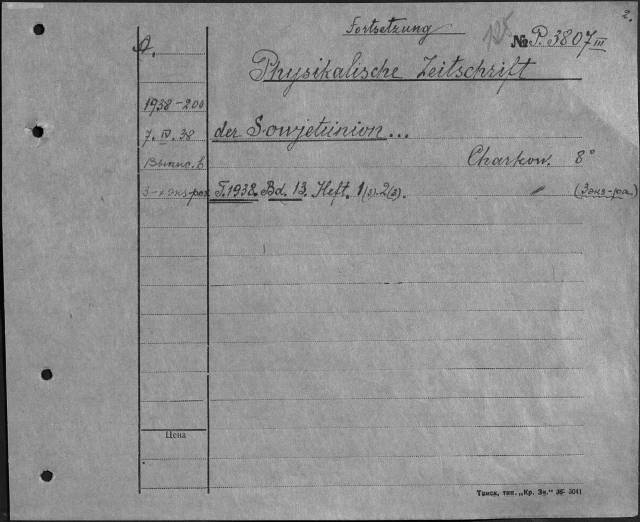 2.
Fortsetzung
125
№ P. 3807 III
A.
Physikalische Zeitschrift
1938-200
7. IV. 38 der Sowjetunion...
Выпис. в Charkow. 8°
3-х экз-рах J. 1938. Bd. 13. Heft. 1(3). 2(3). (3 экз-ра)
Цена
Томск, тип. „Кр. Зн." 36- 3041